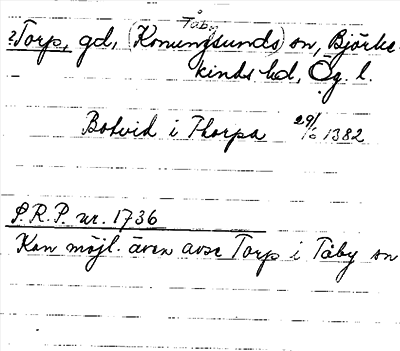 Tåby
?Torp, gd, (Konungsunds) sn, Björke-
kinds hd, Ög. l.
Botvid i Thorpa 29/6 1382
S.R.P. nr. 1736
Kan möjl. även avse Torp i Tåby sn